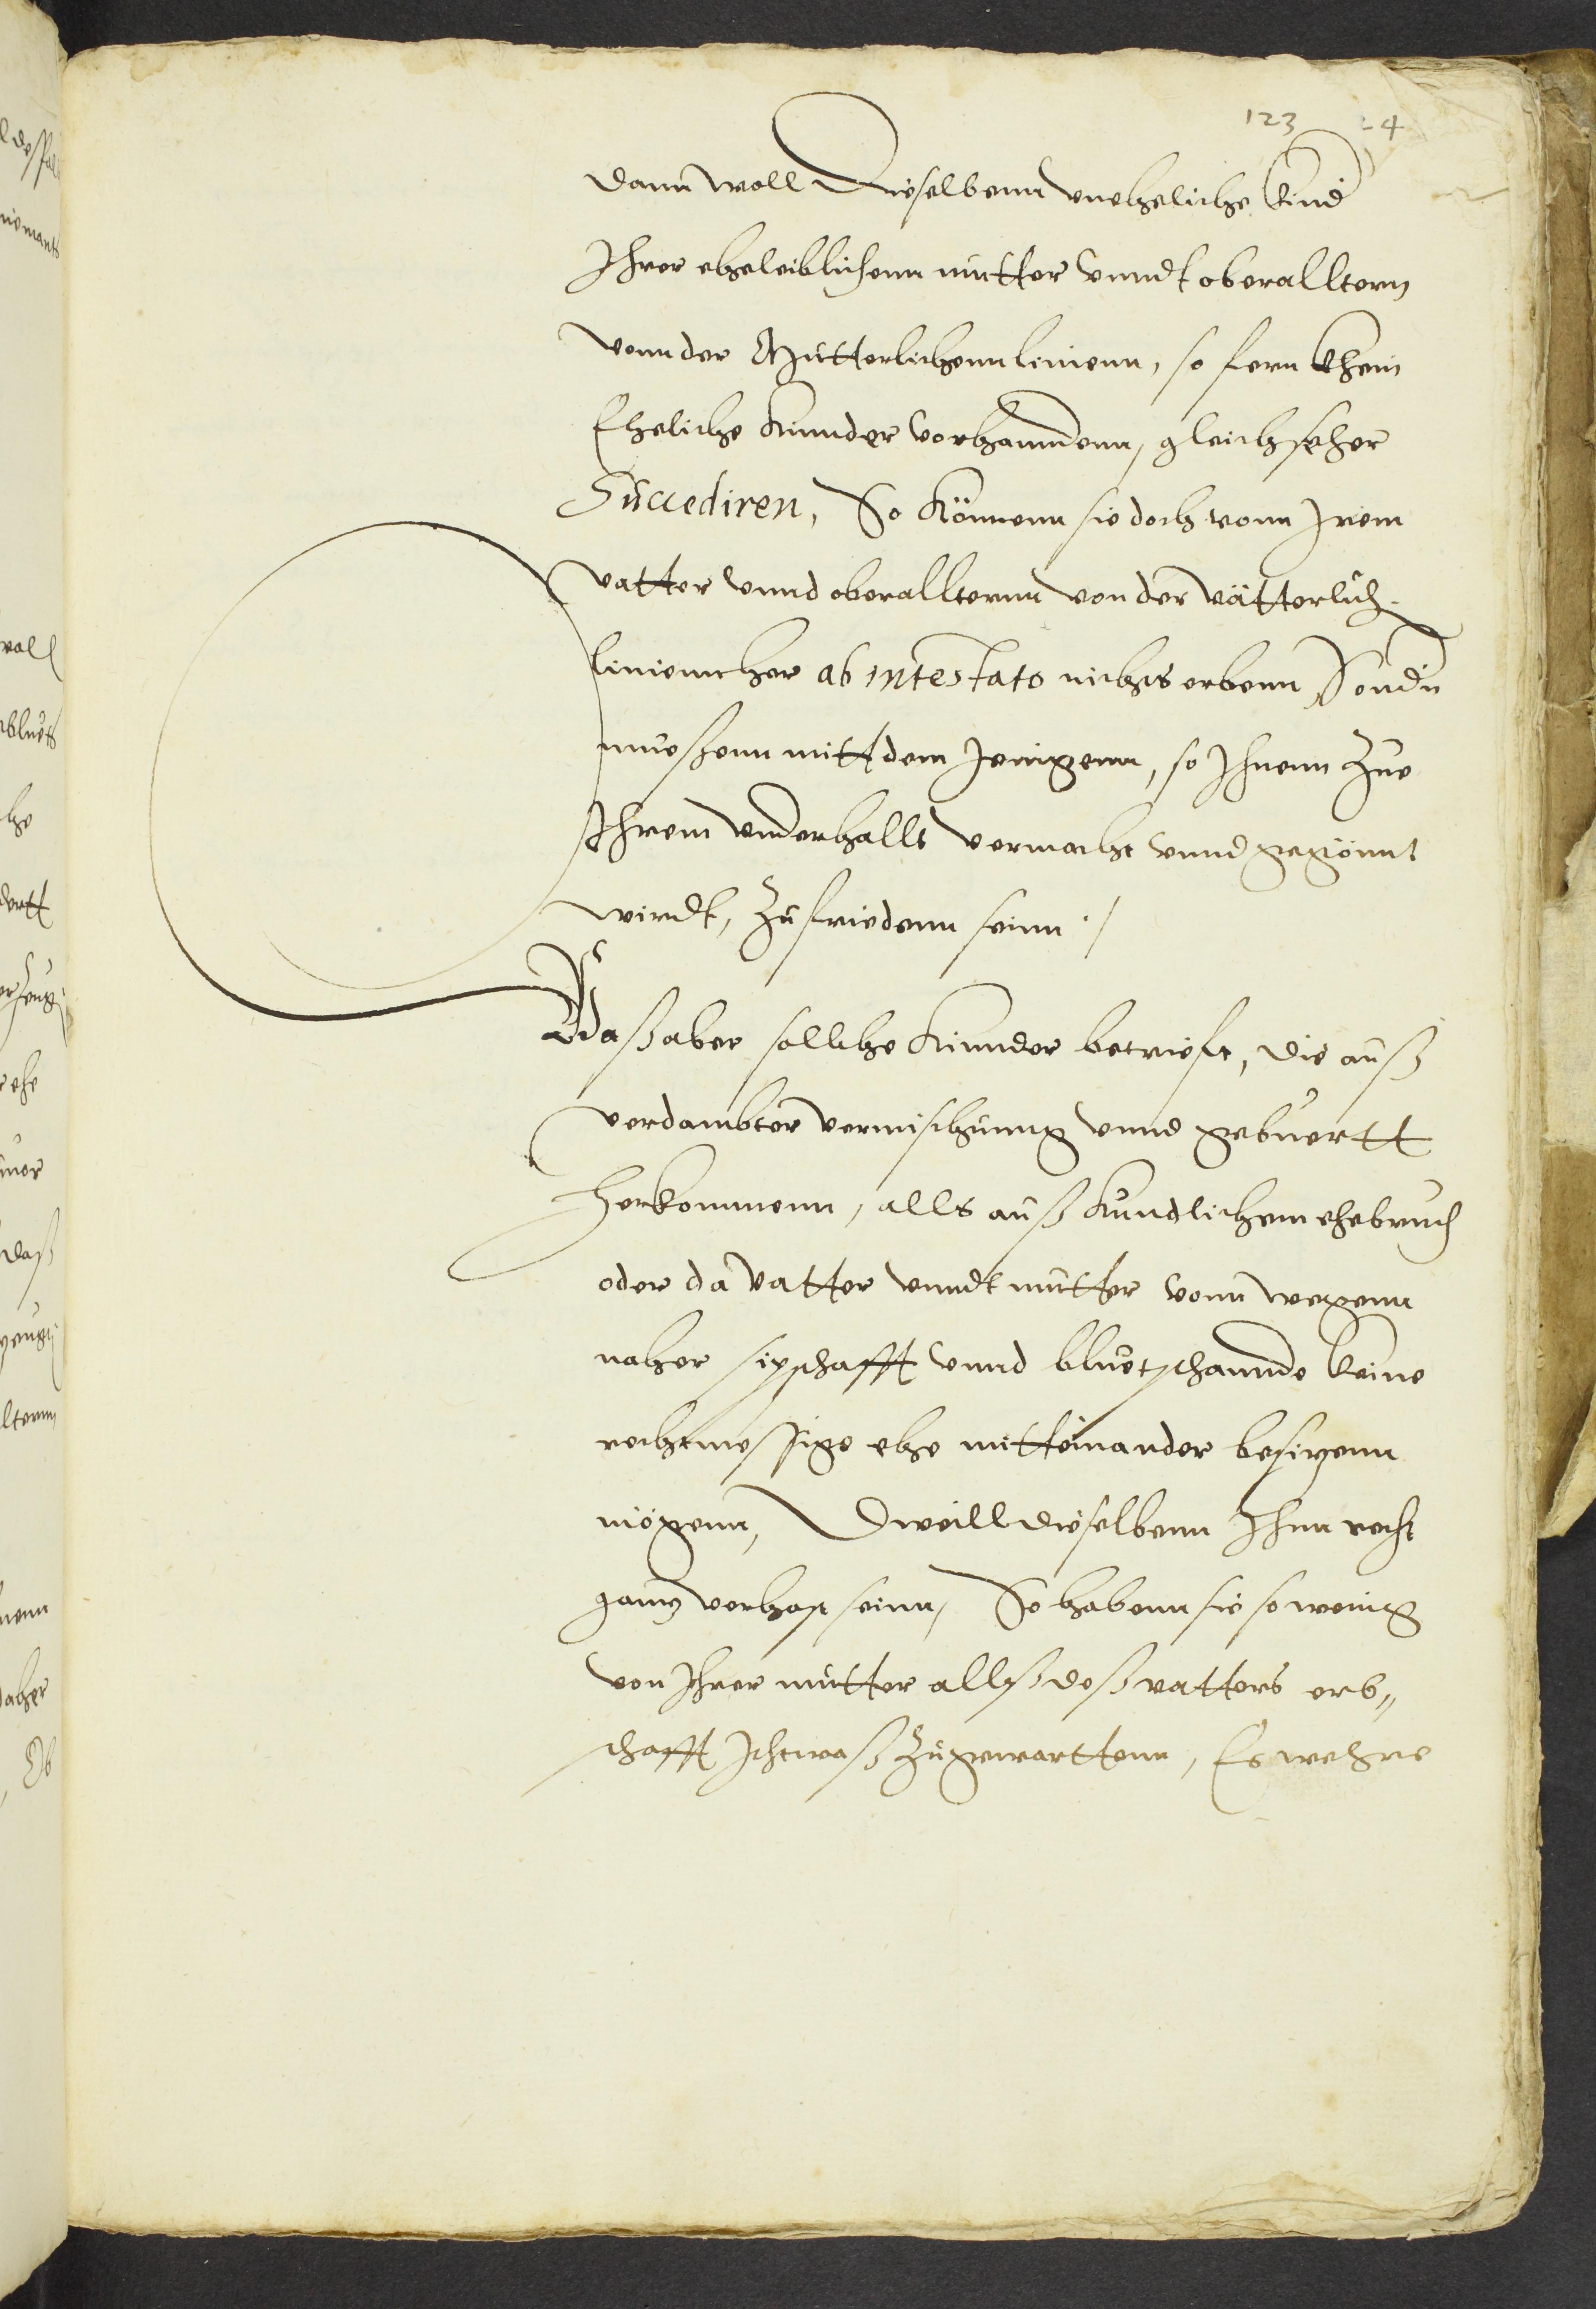 123 24
Dann woll Dieselbenn vneheliche kind
Ihrer eheleiblichenn mutter vnndt oberalltern
vonn der Mütterlichenn linienn, so fern khein
Eheliche Kinnder vorhanndenn, gleich
Succediren, So Könnenn sie doch vonn Irem
vatter vnnd oberallternn von der vätterlich
linienn her ab intestato nichts erbenn Sondn
mueßenn mitt dem Jenigenn, so Ihnenn Zue
Ihrem vnderhallt vermacht vnnd gegönnt
wirdt, Zufriedenn seinn ./
Waß aber sollche Kinnder betriefft, die auß
verdambter vermischung vnnd gebuertt
Herkommenn, alls auß Kundlichem ehebruch
oder da vatter vnndt mutter vonn wegenn
naher sipschafft vnnd bluetschannde keine
rechtmessige ehe mitteinander besizenn
mögenn, Dweill dieselbenn Ihnn recht
ganz verhast seinn, So habenn sie so wenig
von Ihrer mutter allß deß vatters erb„
schafft Ichtwaß Zugewarttenn, Es wehre